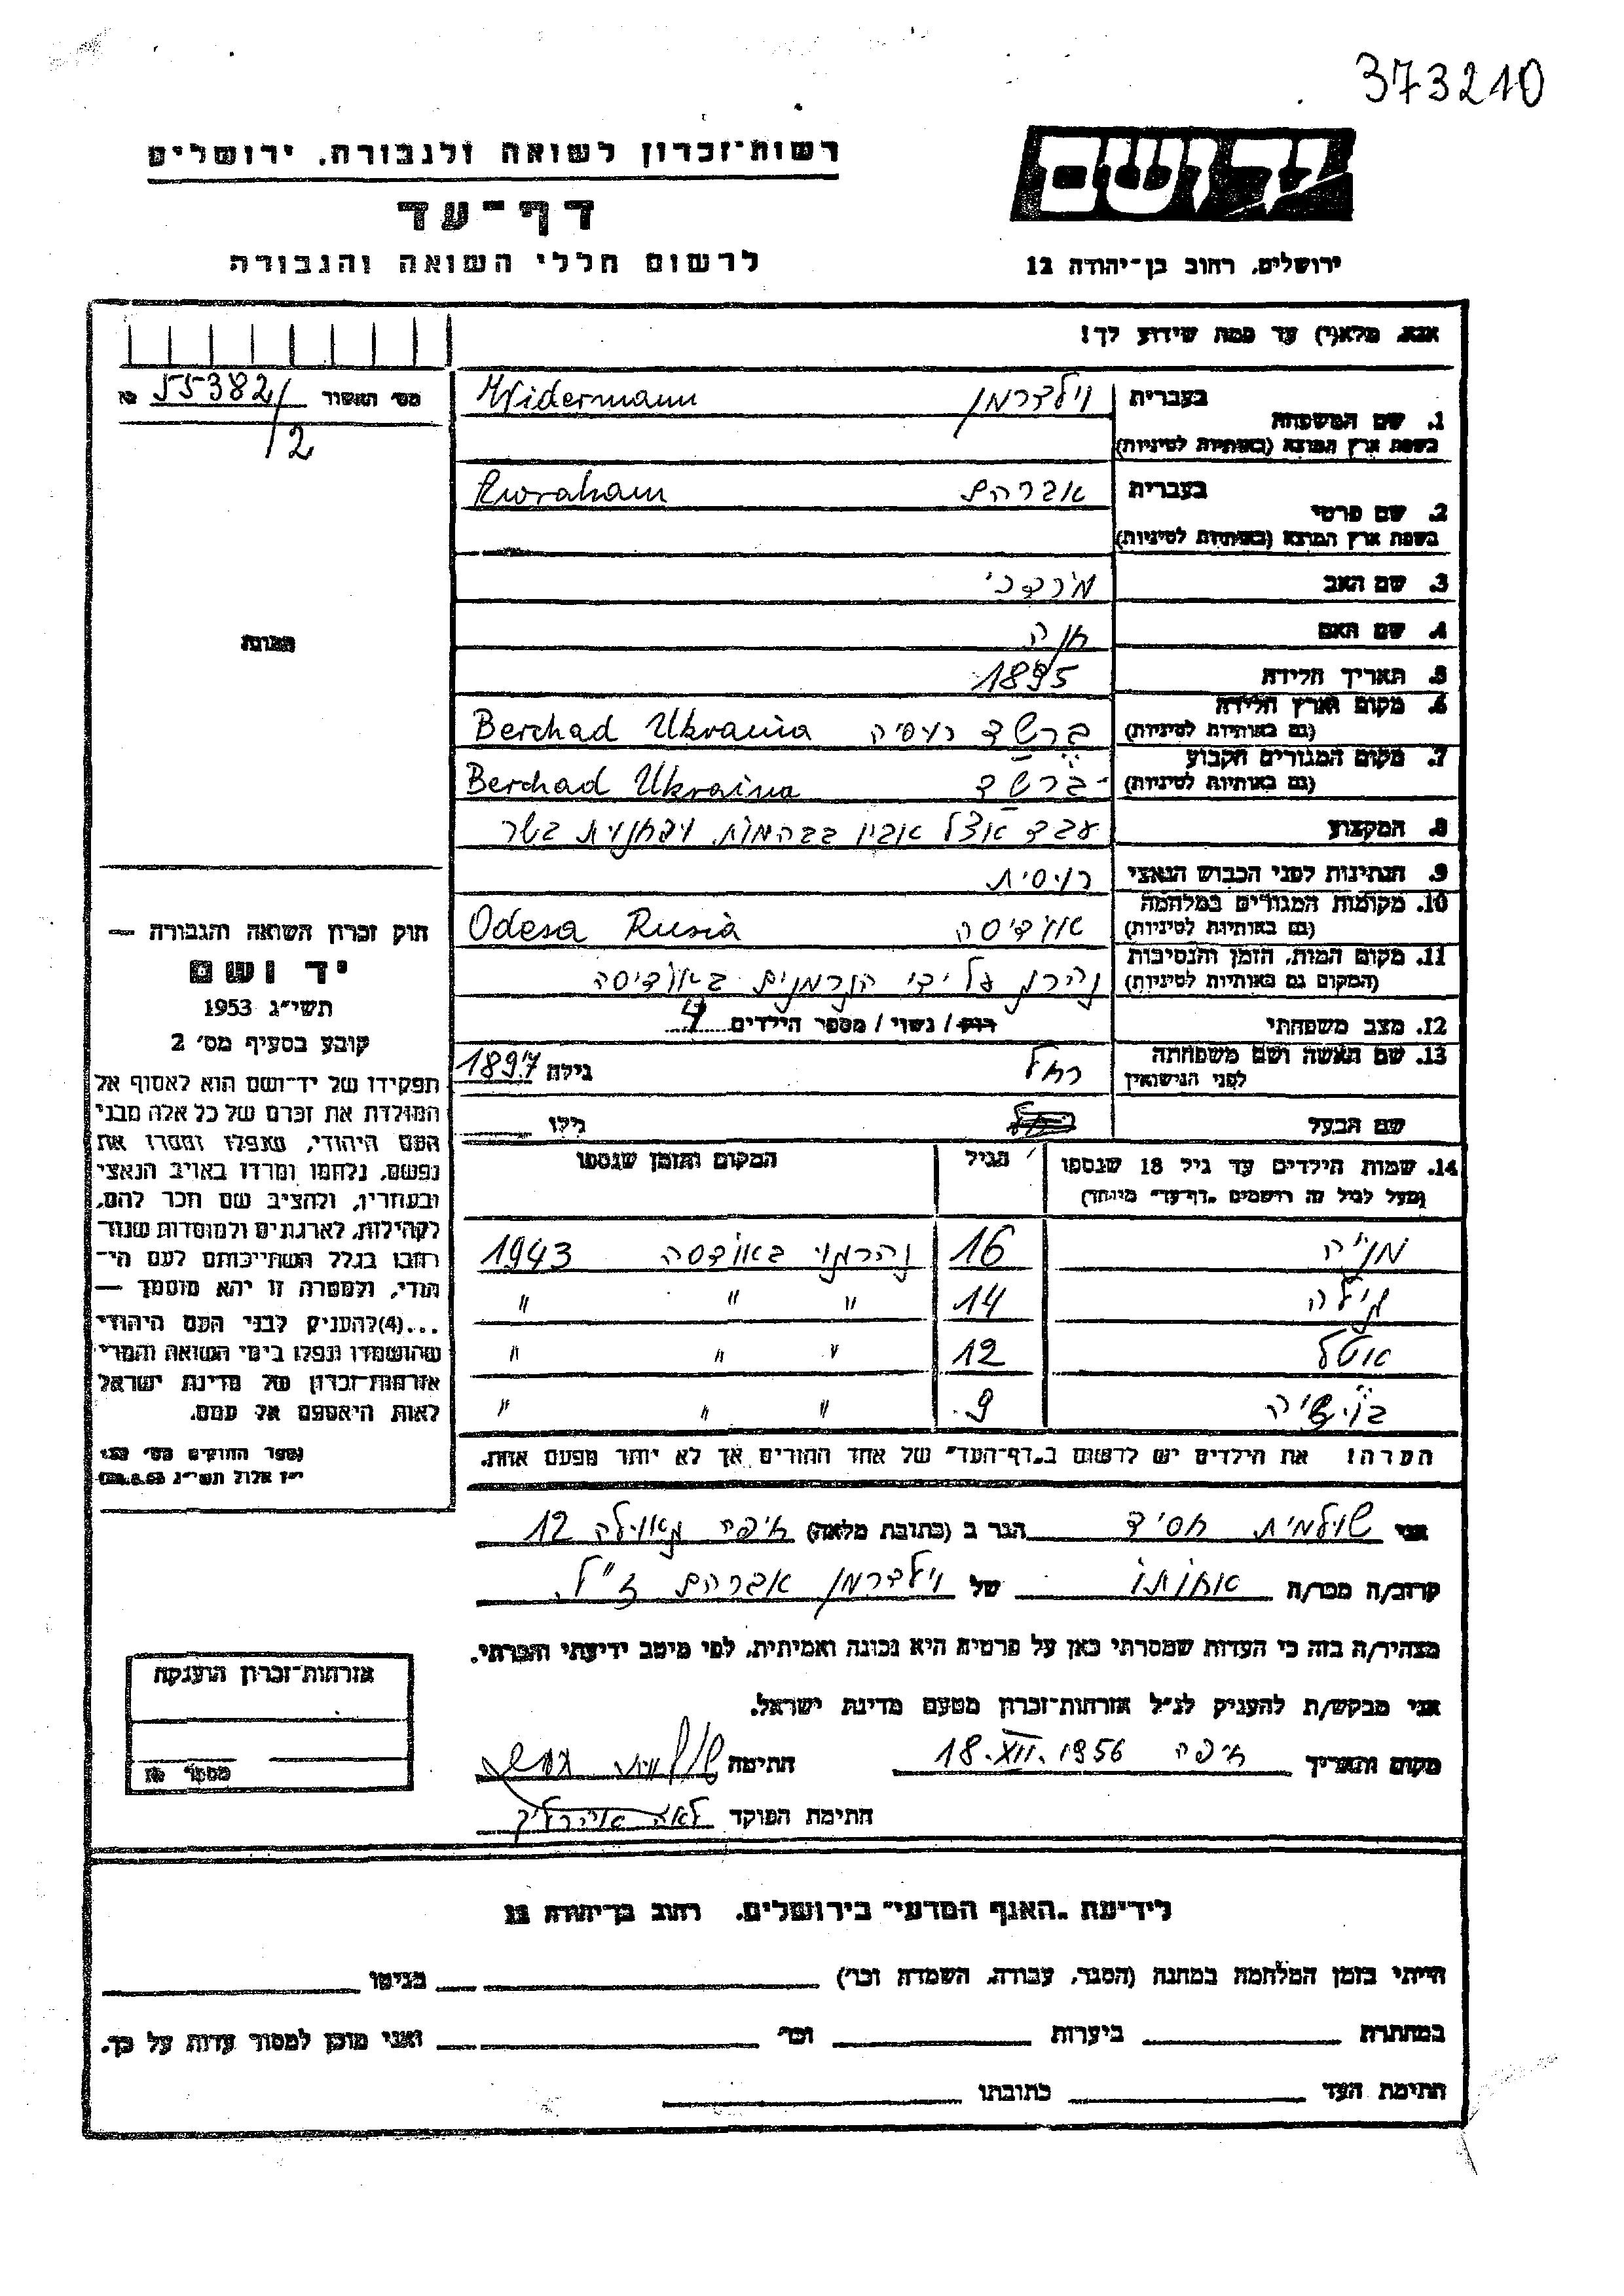 373210
יד ושם
רשות־זכרון לשואה ולגבורה, ירושלים
דף־עד
ירושלים, רחוב בן־יהודה 12
לרשום חללי השואה והגבורה
אנא, מלא(י) עד כמה שידוע לך!
מס׳ האשור 55382/
/2
1. שם המשפחה בעברית וילדרמן Wildermann
בשפת ארץ המוצא (באותיות לטיניות)
2. שם פרטי בעברית אברהם Awraham
בשפת ארץ המוצא (באותיות לטיניות)
3. שם האב מרדכי
4. שם האם חוה
תמונה
5. תאריך הלידה 1895
6. מקום וארץ הלידה ברשד רוסיה Berchad Ukraina
(גם באותיות לטיניות)
7. מקום המגורים הקבוע ברשד Berchad Ukraina
(גם באותיות לטיניות)
8. המקצוע עבד אצל אביו בבהמות ובחנות בשר
9. הנתינות לפני הכבוש הנאצי רוסית
10. מקומות המגורים במלחמה אודיסה Odesa Rusia
(גם באותיות לטיניות)
11. מקום המות, הזמן והנסיבות נהרג על ידי הגרמנים באודיסה
(המקום גם באותיות לטיניות)
12. מצב משפחתי רווק / נשוי / מספר הילדים 4
13. שם האשה ושם משפחתה רחל גילה 1897
לפני הנישואין
שם הבעל גילו
14. שמות הילדים עד גיל 18 שנספו הגיל המקום והזמן שנספו
(מעל לגיל זה רושמים „דף־עד״ מיוחד)
מניה 16 נהרגו באודסה 1943
גילה 14 ״ ״ ״
אטל 12 ״ ״ ״
בוישיה 9 ״ ״ ״
הערה: את הילדים יש לרשום ב„דף־העד״ של אחד ההורים אך לא יותר מפעם אחת.
חוק זכרון השואה והגבורה —
יד ושם
תשי״ג 1953
קובע בסעיף מס׳ 2
תפקידו של יד־ושם הוא לאסוף אל
המולדת את זכרם של כל אלה מבני
העם היהודי, שנפלו ומסרו את
נפשם, נלחמו ומרדו באויב הנאצי
ובעוזריו, ולהציב שם וזכר להם,
לקהילות, לארגונים ולמוסדות שנח־
רבו בגלל השתייכותם לעם הי־
הודי, ולמטרה זו יהא מוסמך —
...(4)להעניק לבני העם היהודי
שהושמדו ונפלו בימי השואה והמרי
אזרחות־זכרון של מדינת ישראל
לאות היאספם אל עמם.
(ספר החוקים מס׳ 132
י״ז אלול תשי״ג 28.8.53)
אני שולמית חסיד הגר ב (כתובת מלאה) חיפה גאולה 12
קרוב/ה מכר/ה אחותו של וילדרמן אברהם ז״ל
מצהיר/ה בזה כי העדות שמסרתי כאן על פרטיה היא נכונה ואמיתית, לפי מיטב ידיעתי והכרתי.
אני מבקש/ת להעניק לנ״ל אזרחות־זכרון מטעם מדינת ישראל.
מקום ותאריך חיפה 18.XII.1956 חתימה
חתימת הפוקד
אזרחות־זכרון הוענקה
מספר
לידיעת „האגף המדעי״ בירושלים, רחוב בן־יהודה 12
הייתי בזמן המלחמה במחנה (הסגר, עבודה, השמדה וכו׳) בגיטו
במחתרת ביערות וכו׳ ואני מוכן למסור עדות על כך.
חתימת העד כתובתו